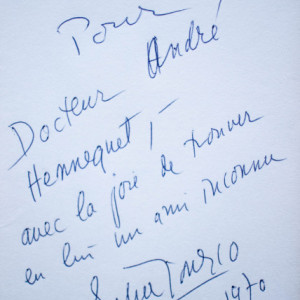 Pour
André
Docteur
Hennequet, -
avec la joie de trouver
en lui un ami inconnu
1970